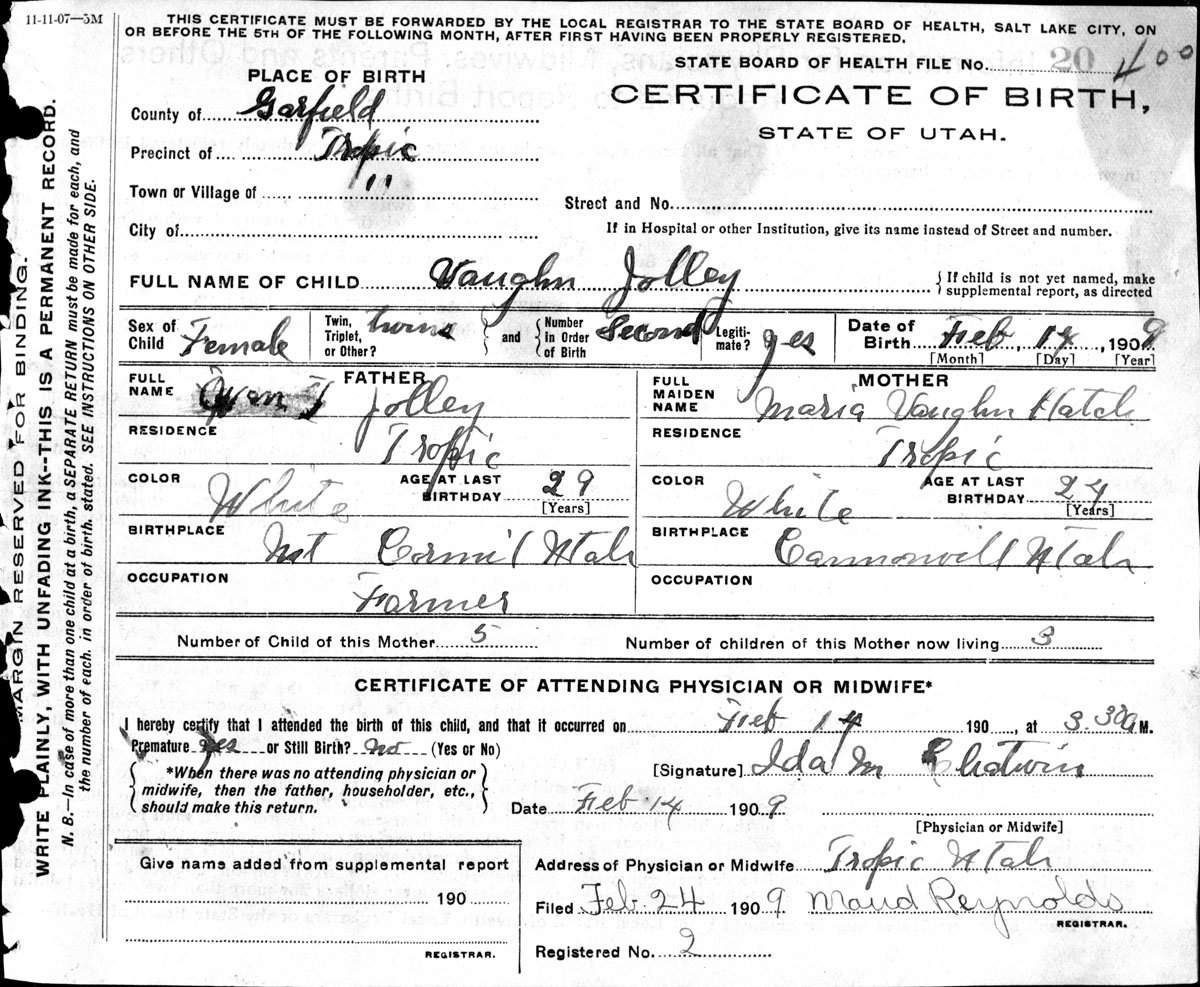 11-11-07—5M
THIS CERTIFICATE MUST BE FORWARDED BY THE LOCAL REGISTRAR TO THE STATE BOARD OF HEALTH, SALT LAKE CITY, ON
OR BEFORE THE 5TH OF THE FOLLOWING MONTH, AFTER FIRST HAVING BEEN PROPERLY REGISTERED.
STATE BOARD OF HEALTH FILE No. 400
CERTIFICATE OF BIRTH,
STATE OF UTAH.
PLACE OF BIRTH
County of Garfield
Precinct of Tropic
Town or Village of "
City of
Street and No.
If in Hospital or other Institution, give its name instead of Street and number.
FULL NAME OF CHILD Vaughn Jolley { If child is not yet named, make supplemental report, as directed
Sex of Child Female Twin, Triplet, or Other? twins } and { Number In Order of Birth Second Legiti-mate? yes Date of Birth Feb, 14, 1909 [Month] [Day] [Year]
FATHER
FULL NAME Jolley
RESIDENCE Tropic
COLOR White AGE AT LAST BIRTHDAY 29 [Years]
BIRTHPLACE Mt Carmel Utah
OCCUPATION Farmer
MOTHER
FULL MAIDEN NAME Maria Vaughn Hatch
RESIDENCE Tropic
COLOR White AGE AT LAST BIRTHDAY 24 [Years]
BIRTHPLACE Cannonvill Utah
OCCUPATION
Number of Child of this Mother 5 Number of children of this Mother now living 3
CERTIFICATE OF ATTENDING PHYSICIAN OR MIDWIFE*
I hereby certify that I attended the birth of this child, and that it occurred on Feb 14 190 , at 3.30 a M.
Premature yes or Still Birth? no (Yes or No)
{ *When there was no attending physician or midwife, then the father, householder, etc., should make this return. }
[Signature] Ida M Chatwin
Date Feb 14 1909
[Physician or Midwife]
Give name added from supplemental report
190
REGISTRAR.
Address of Physician or Midwife Tropic Utah
Filed Feb 24 1909 Maud Reynolds
REGISTRAR.
Registered No. 2
MARGIN RESERVED FOR BINDING.
WRITE PLAINLY, WITH UNFADING INK--THIS IS A PERMANENT RECORD.
N. B.—In case of more than one child at a birth, a SEPARATE RETURN must be made for each, and
the number of each, in order of birth, stated. SEE INSTRUCTIONS ON OTHER SIDE.